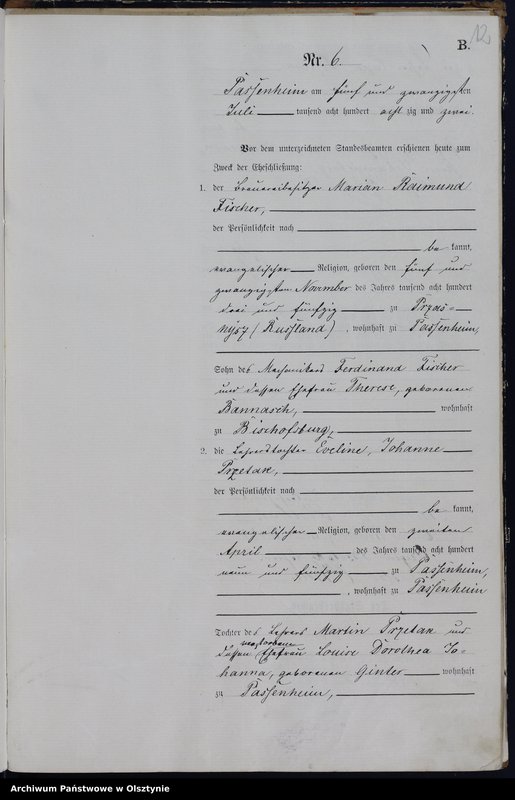 12.
B.
Nr. 6.
Passenheim am fünf und zwanzigsten
Juli tausend acht hundert acht zig und zwei.
Vor dem unterzeichneten Standesbeamten erschienen heute zum
Zweck der Eheschließung:
1. der Brauereibesitzer Marian Raimund
Fischer,
der Persönlichkeit nach
be kannt,
evangelischer Religion, geboren den fünf und
zwanzigsten November des Jahres tausend acht hundert
drei und fünfzig zu Przas-
nysz (Russland), wohnhaft zu Passenheim,
Sohn des Mechanikers Ferdinand Fischer
und dessen Ehefrau Therese, geborenen
Bannasch, wohnhaft
zu Bischofsburg,
2. die Lehrerstochter Eveline, Johanne
Przetak,
der Persönlichkeit nach
be kannt,
evangelischer Religion, geboren den zweiten
April des Jahres tausend acht hundert
neun und fünfzig zu Passenheim,
, wohnhaft zu Passenheim
Tochter des Lehrers Martin Przetak und
verstorbenen
dessen Ehefrau Louise Dorothea Jo-
hanna, geborenen Ginter wohnhaft
zu Passenheim,
Archiwum Państwowe w Olsztynie